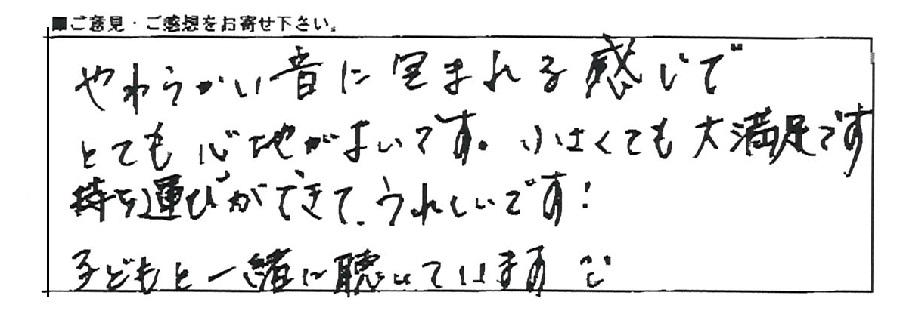 ■ご意見・ご感想をお寄せ下さい。
やわらかい音に包まれる感じで
とても心地がよいです。小さくても大満足です
持ち運びができて、うれしいです!
子どもと一緒に聴いています